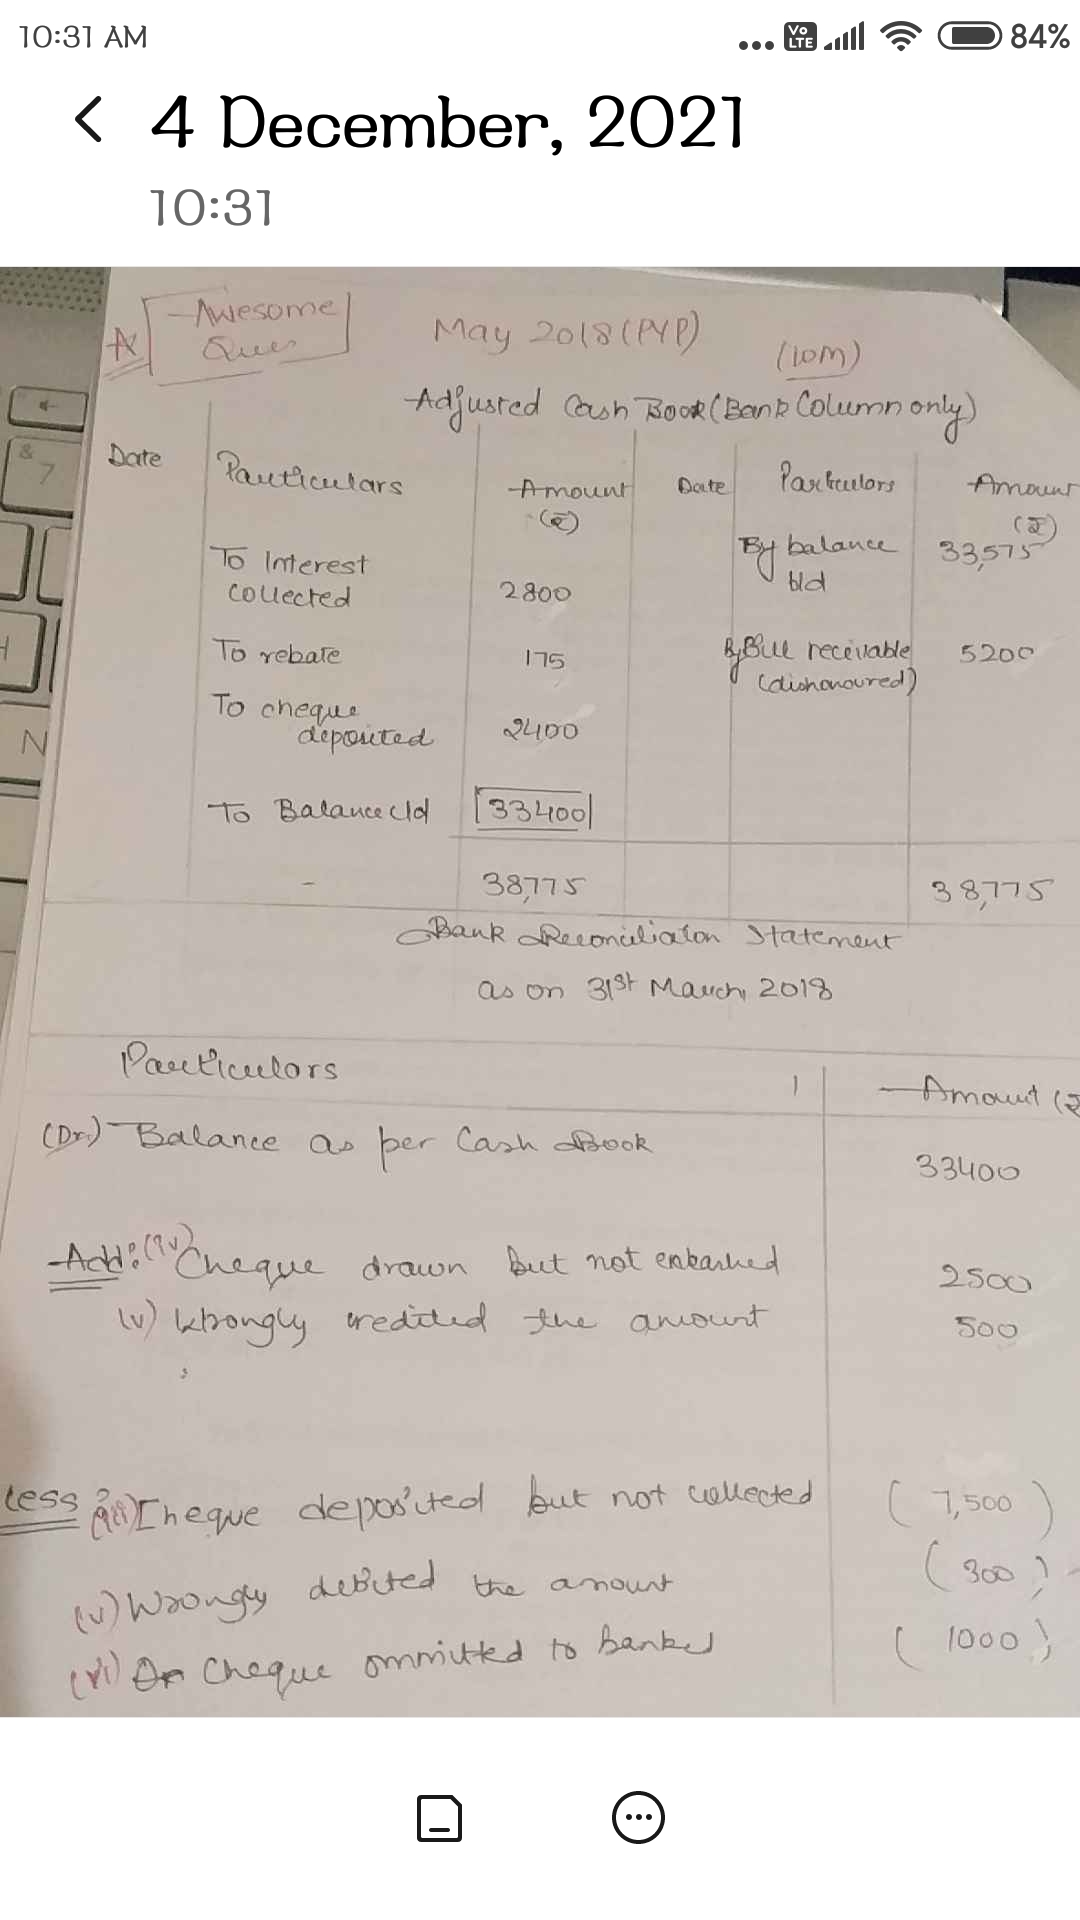 10:31 AM
Vo LTE 84%
< 4 December, 2021
10:31
Awesome
Ques
May 2018 (PYP)
(10M)
Adjusted Cash Book (Bank Column only)
Date Particulars Amount (₹) Date Particulars Amount (₹)
To Interest collected 2800 By balance b/d 33,575
To rebate 175 By Bill receivable (dishonoured) 5200
To cheque deposited 2400
To Balance c/d 33400
38,775 38,775
Bank Reconciliaton Statement
as on 31st March, 2018
Particulars Amount (₹
(Dr.) Balance as per Cash Book 33400
Add: (iv) Cheque drawn but not enkashed 2500
(v) Wrongly credited the amount 500
Less (iii) Cheque deposited but not collected (7,500)
(v) Wrongly debited the amount (300)
(vi) Cheque ommitted to banked (1000)